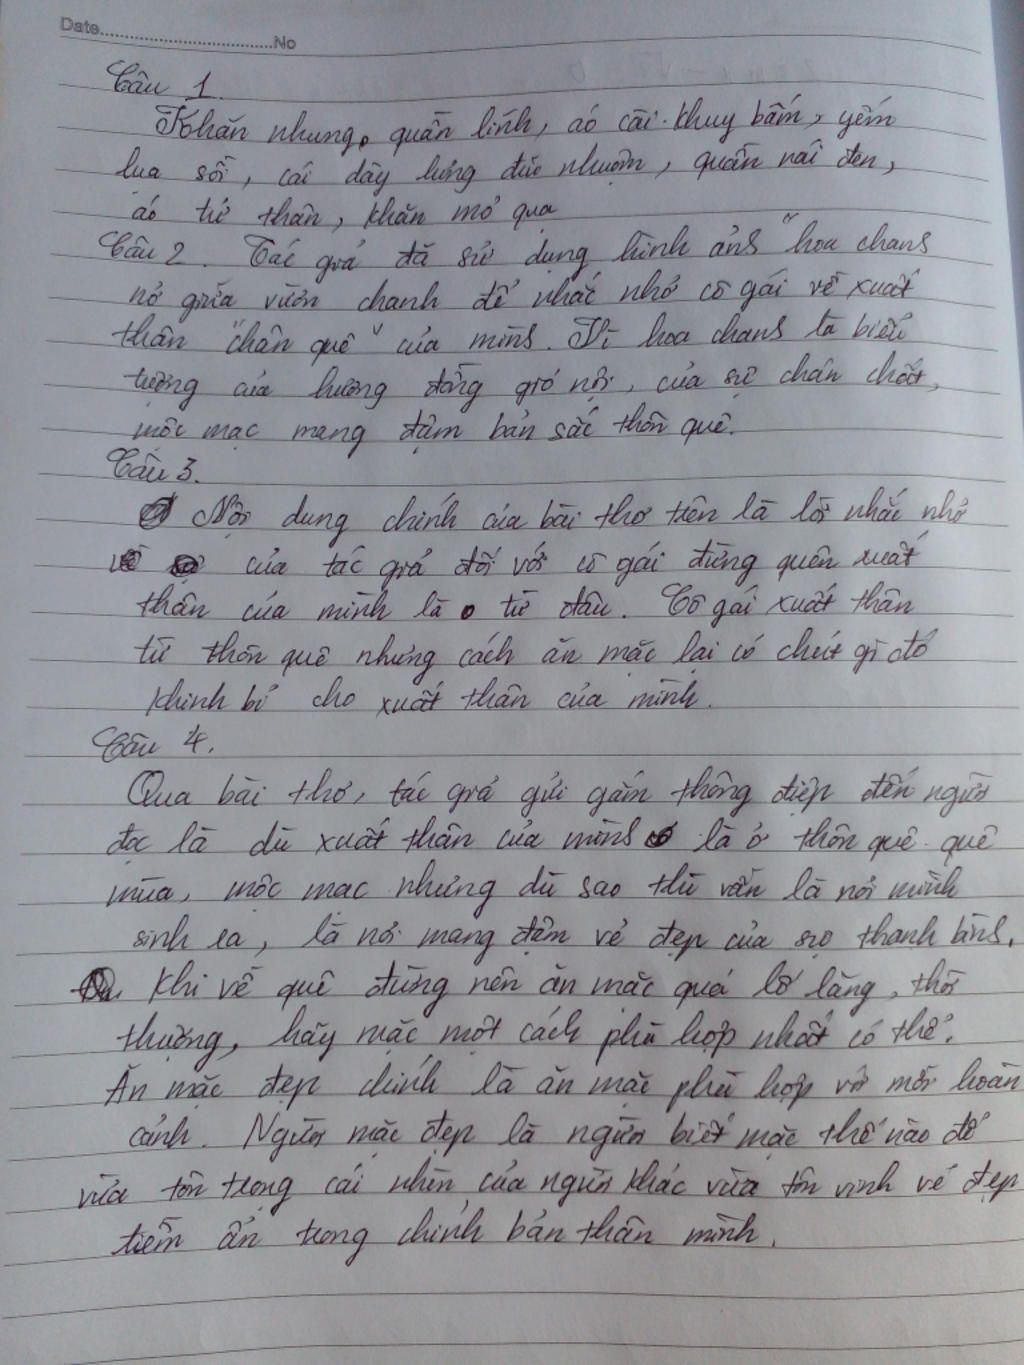 Date.................................No
Câu 1.
Khăn nhung, quần lĩnh, áo cài khuy bấm, yếm
lụa sồi, cái dây lưng đũi nhuộm, quần nái đen,
áo tứ thân, khăn mỏ quạ
Câu 2. Tác giả đã sử dụng hình ảnh "hoa chanh
nở giữa vườn chanh để nhắc nhở cô gái về xuất
thân "chân quê" của mình. Vì hoa chanh là biểu
tượng của hương đồng gió nội, của sự chân chất,
mộc mạc mang đậm bản sắc thôn quê.
Câu 3.
Nội dung chính của bài thơ trên là lời nhắc nhở
của tác giả đối với cô gái đừng quên xuất
thân của mình là từ đâu. Cô gái xuất thân
từ thôn quê nhưng cách ăn mặc lại có chút gì đó
khinh bỉ cho xuất thân của mình.
Câu 4.
Qua bài thơ, tác giả gửi gắm thông điệp đến người
đọc là dù xuất thân của mình là ở thôn quê quê
mùa, mộc mạc nhưng dù sao thì vẫn là nơi mình
sinh ra, là nơi mang đậm vẻ đẹp của sự thanh bình.
Khi về quê đừng nên ăn mặc quá lố lăng, thời
thượng, hãy mặc một cách phù hợp nhất có thể.
Ăn mặc đẹp chính là ăn mặc phù hợp với mỗi hoàn
cảnh. Người mặc đẹp là người biết mặc thế nào để
vừa tôn trọng cái nhìn của người khác vừa tôn vinh vẻ đẹp
tiềm ẩn trong chính bản thân mình.